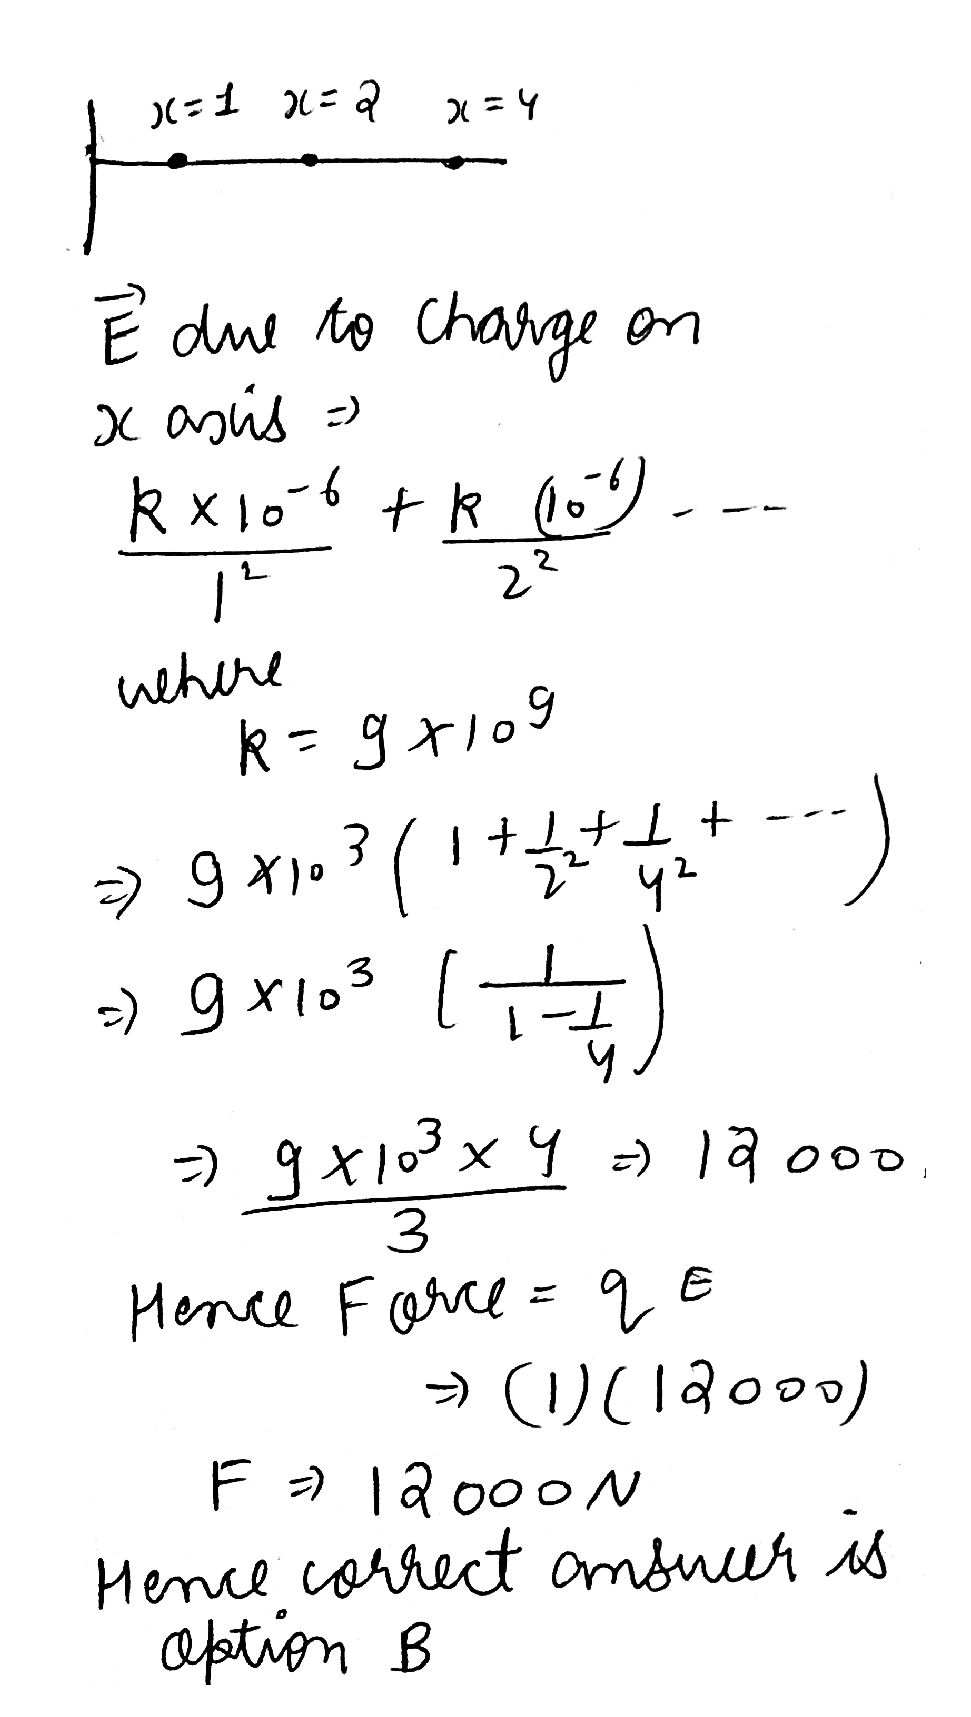 x=1 x=2 x=4
E⃗ due to charge on
x axis ⇒
k×10⁻⁶/1² + k(10⁻⁶)/2² ----
where
k = 9×10⁹
⇒ 9×10³(1+1/2²+1/4²+ ----)
⇒ 9×10³ [1/(1-1/4))
⇒ 9×10³×4/3 ⇒ 12000.
Hence Force = q E
⇒ (1)(12000)
F ⇒ 12000N
Hence correct answer is
option B